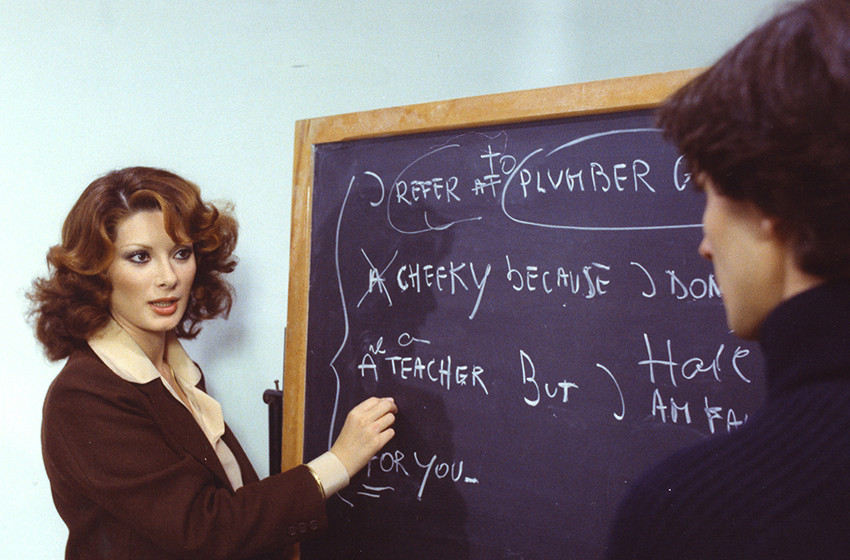 I REFER AT TO PLUMBER G
A CHEEKY BECAUSE I DON
ARE A TEACHER BUT I HAVE
AM FA
FOR YOU_